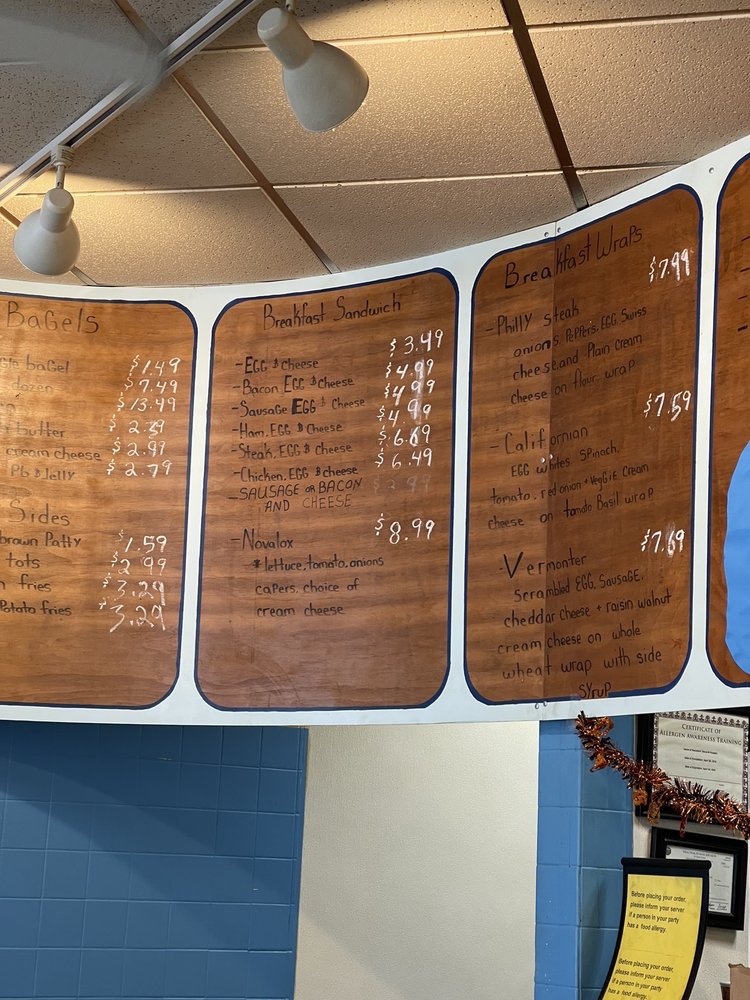 BaGels
bagel $1.49
dozen $7.49
$13.49
butter $2.29
cream cheese $2.99
Pb & Jelly $2.79
Sides
brown Patty $1.59
tots $2.99
fries $3.29
Potato fries $3.29
Breakfast Sandwich
- EGG & Cheese $3.49
- Bacon EGG & Cheese $4.99
- Sausage EGG & Cheese $4.99
- Ham, EGG & Cheese $4.99
- Steak, EGG & Cheese $6.69
- Chicken, EGG & cheese $6.49
- SAUSAGE or BACON $2.99
AND CHEESE
- Novalox $8.99
* lettuce, tomato, onions
capers, choice of
cream cheese
Breakfast Wraps
- Philly steak $7.99
onions, Peppers, EGG, Swiss
cheese and Plain Cream
cheese on flour wrap
- Californian $7.59
EGG whites, Spinach,
tomato, red onion + veggie cream
cheese on tomato Basil wrap
- Vermonter $7.69
Scrambled EGG, Sausage,
cheddar cheese + raisin walnut
cream cheese on whole
wheat wrap with side
syrup
CERTIFICATE OF
ALLERGEN AWARENESS TRAINING
Before placing your order,
please inform your server
if a person in your party
has a food allergy.
Before placing your order,
please inform your server
if a person in your party